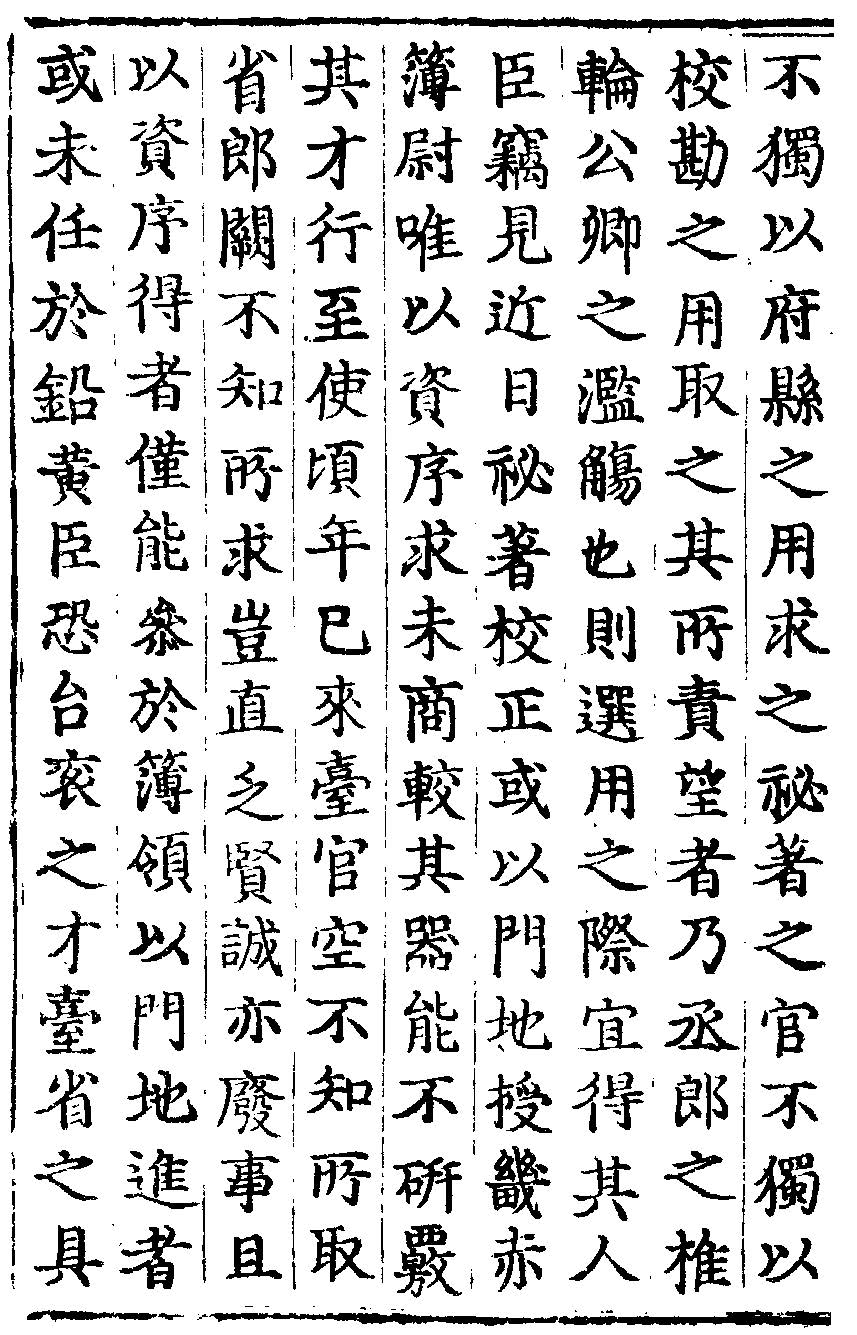 不獨以府縣之用求之祕著之官不獨以
校勘之用取之其所責望者乃丞郎之椎
輪公卿之濫觴也則選用之際宜得其人
臣竊見近日祕著校正或以門地授畿赤
簿尉唯以資序求未商較其器能不硏覈
其才行至使頃年已來臺官空不知所取
省郎闕不知所求豈直乏賢誠亦廢事且
以資序得者僅能叅於簿領以門地進者
或未任於鉛黃臣恐台衮之才臺省之具